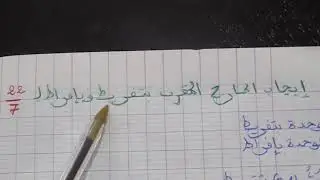 إيجاد الخارج المقرب بتفريط وبإفراط لـ 22/7
وحدة بتفريط
لوحدة بإفراط